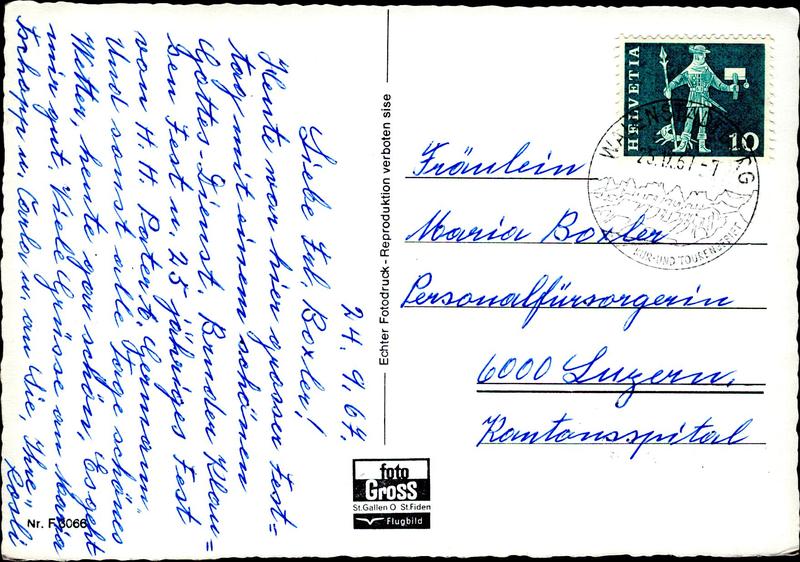 24. 9. 67.
Liebe Frl. Boxler!
Heute war hier grosser Fest=
tag mit einem schönen
Gottes-Dienst. Bruder Klau=
sen Fest u. 25 jähriges Fest
von H. H. Pater t. Germann.
Und sonst alle Tage schönes
Wetter, heute gar schön. Es geht
mir gut. Viele Grüsse an Maria
u. Carla u. an Sie, Ihre
Rösli
Nr. F 3066
Echter Fotodruck - Reproduktion verboten sise
foto
Gross
St.Gallen O St.Fiden
Flugbild
HELVETIA
10
WALENSTADTBERG
25.IX.67-1
KUR- UND TOURENGEBIET
Fräulein
Maria Boxler
Personalfürsorgerin
6000 Luzern.
Kantonsspital